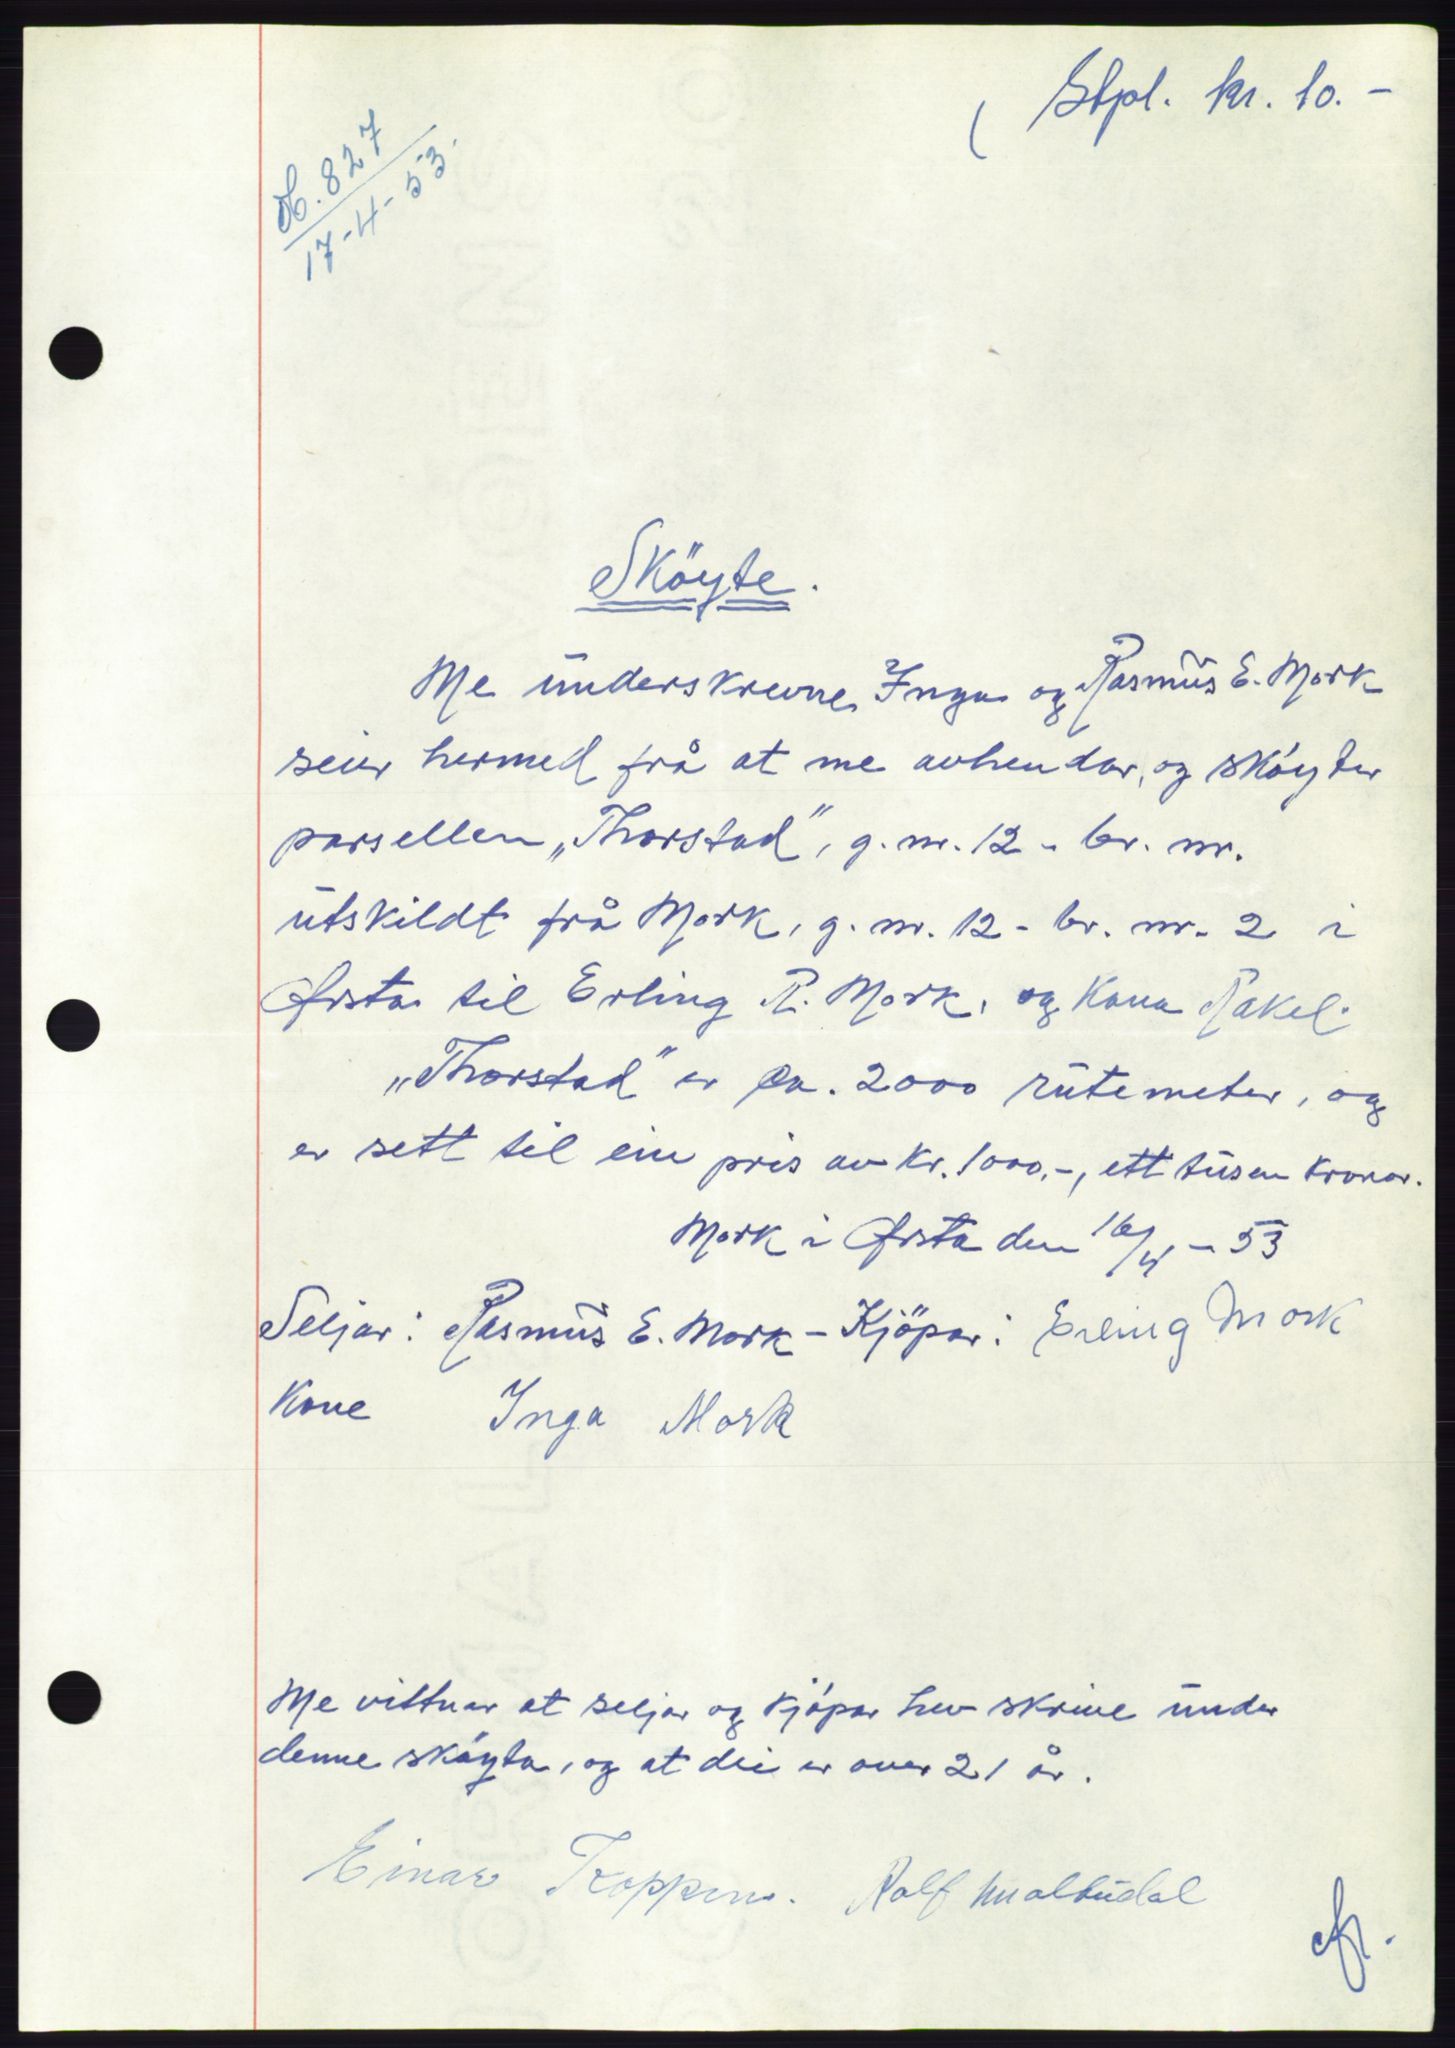 Stpl. kr. 10.-
827
17-4-53.
Sköyte.
Me underskrevne Inga og Rasmus E. Mork
seier hermed frå at me avhendar, og sköyter
parsellen „Thorstad", g. nr. 12 - br. nr.
utskildt frå Mork, g. nr. 12 - br. nr. 2 i
Ørsta til Erling R. Mork, og Kona Rakel.
„Thorstad" er ca. 2000 rutemeter, og
er sett til ein pris av Kr. 1000.-, ett tusen Kronor.
Mork i Ørsta den 16/4 - 53
Seljar: Rasmus E. Mork - Kjöpar: Erling Mork
Kone Inga Mork
Me vittnar at seljar og kjöpar hev skrive under
denne sköyta, og at dei er over 21 år.
Einar
Rolf